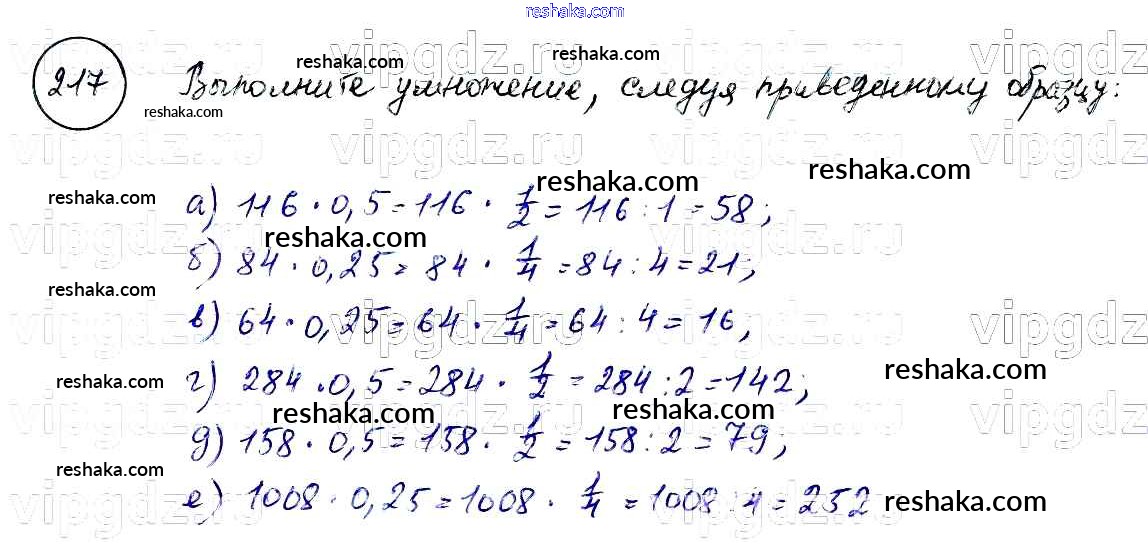 reshaka.com
217 Выполните умножение, следуя приведенному образцу:
reshaka.com reshaka.com
reshaka.com
vipgdz.ru vipgdz.ru vipgdz.ru vipgdz.ru
vipgdz.ru vipgdz.ru vipgdz.ru vipgdz.ru
reshaka.com reshaka.com reshaka.com
а) 116 · 0,5 = 116 · 1/2 = 116 : 1 = 58;
reshaka.com
vipgdz.ru vipgdz.ru vipgdz.ru vipgdz.ru
б) 84 · 0,25 = 84 · 1/4 = 84 : 4 = 21;
reshaka.com
в) 64 · 0,25 = 64 · 1/4 = 64 : 4 = 16,
vipgdz.ru vipgdz.ru vipgdz.ru vipgdz.ru
reshaka.com reshaka.com
г) 284 · 0,5 = 284 · 1/2 = 284 : 2 = 142;
reshaka.com reshaka.com
vipgdz.ru vipgdz.ru vipgdz.ru vipgdz.ru
д) 158 · 0,5 = 158 · 1/2 = 158 : 2 = 79;
reshaka.com
е) 1008 · 0,25 = 1008 · 1/4 = 1008 : 4 = 252
reshaka.com
vipgdz.ru vipgdz.ru vipgdz.ru vipgdz.ru